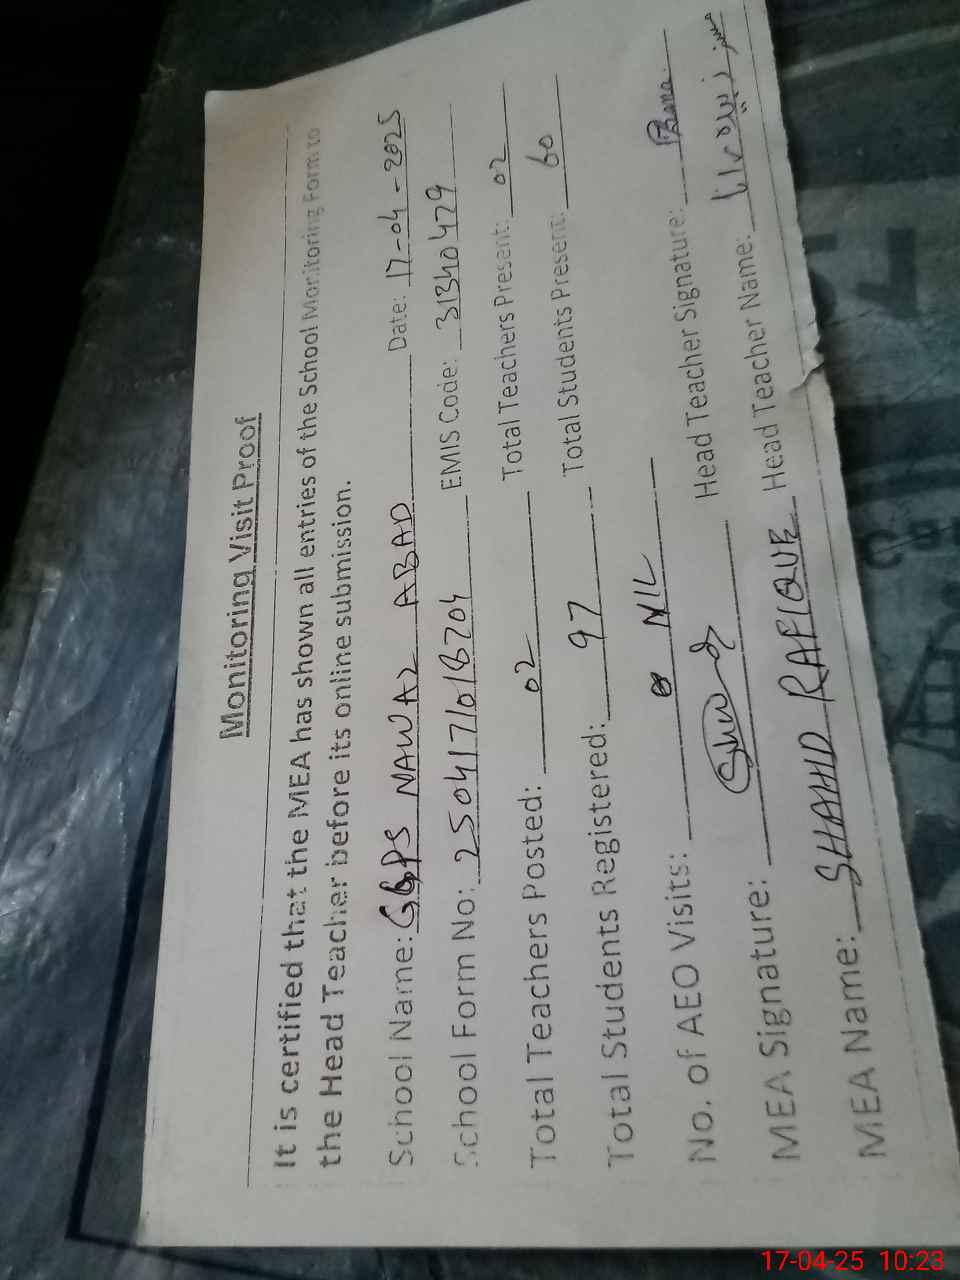 Monitoring Visit Proof
It is certified that the MEA has shown all entries of the School Monitoring Form to
the Head Teacher before its online submission.
School Name: GGPS NAWAZ ABAD Date: 17-04-2025
School Form No: 2504171018204 EMIS Code: 31340479
Total Teachers Posted: 02 Total Teachers Present: 02
Total Students Registered: 97 Total Students Present: 60
No. of AEO Visits: NIL
MEA Signature: Head Teacher Signature:
MEA Name: SHAHID RAFIQUE Head Teacher Name:
17-04-25 10:23